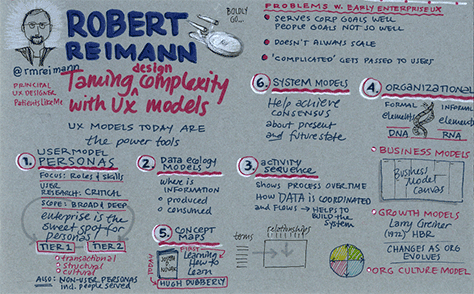 ROBERT
REIMANN
BOLDLY
GO...
@rmreimann
PRINCIPAL
UX DESIGNER
PatientsLikeMe
design
Taming complexity
with UX models
UX MODELS TODAY ARE
the power tools
PROBLEMS W. EARLY ENTERPRISE UX
SERVES CORP GOALS WELL
PEOPLE GOALS NOT SO WELL
DOESN'T ALWAYS SCALE
'COMPLICATED' GETS PASSED TO USERS
1. USER MODEL
PERSONAS
FOCUS: ROLES & SKILLS
USER
RESEARCH: CRITICAL
SCOPE: BROAD & DEEP
enterprise is the
sweet spot for
personas
TIER 1
TIER 2
transactional
structural
cultural
ALSO: NON-USER PERSONAS
incl. people served
2. DATA ecology
MODELS
where is
INFORMATION
produced
consumed
3. activity
sequence
SHOWS PROCESS OVER TIME
HOW DATA is COORDINATED
and FLOWS → HELPS TO
BUILD the
system
4. ORGANIZATIONAL
FORMAL
elements
DNA
INFORMAL
elements
RNA
BUSINESS MODELS
Business
Model
CANVAS
GROWTH MODELS
Larry Greiner
(1972) HBR
CHANGES AS ORG
EVOLVES
ORG CULTURE MODEL
5. CONCEPT
MAPS
TODAY
JOSEPH
NOVAK
FIRST
Learning
How to
Learn
HUGH DUBBERLY
terms
relationships
6. SYSTEM MODELS
Help achieve
CONSENSUS
about present
and future state